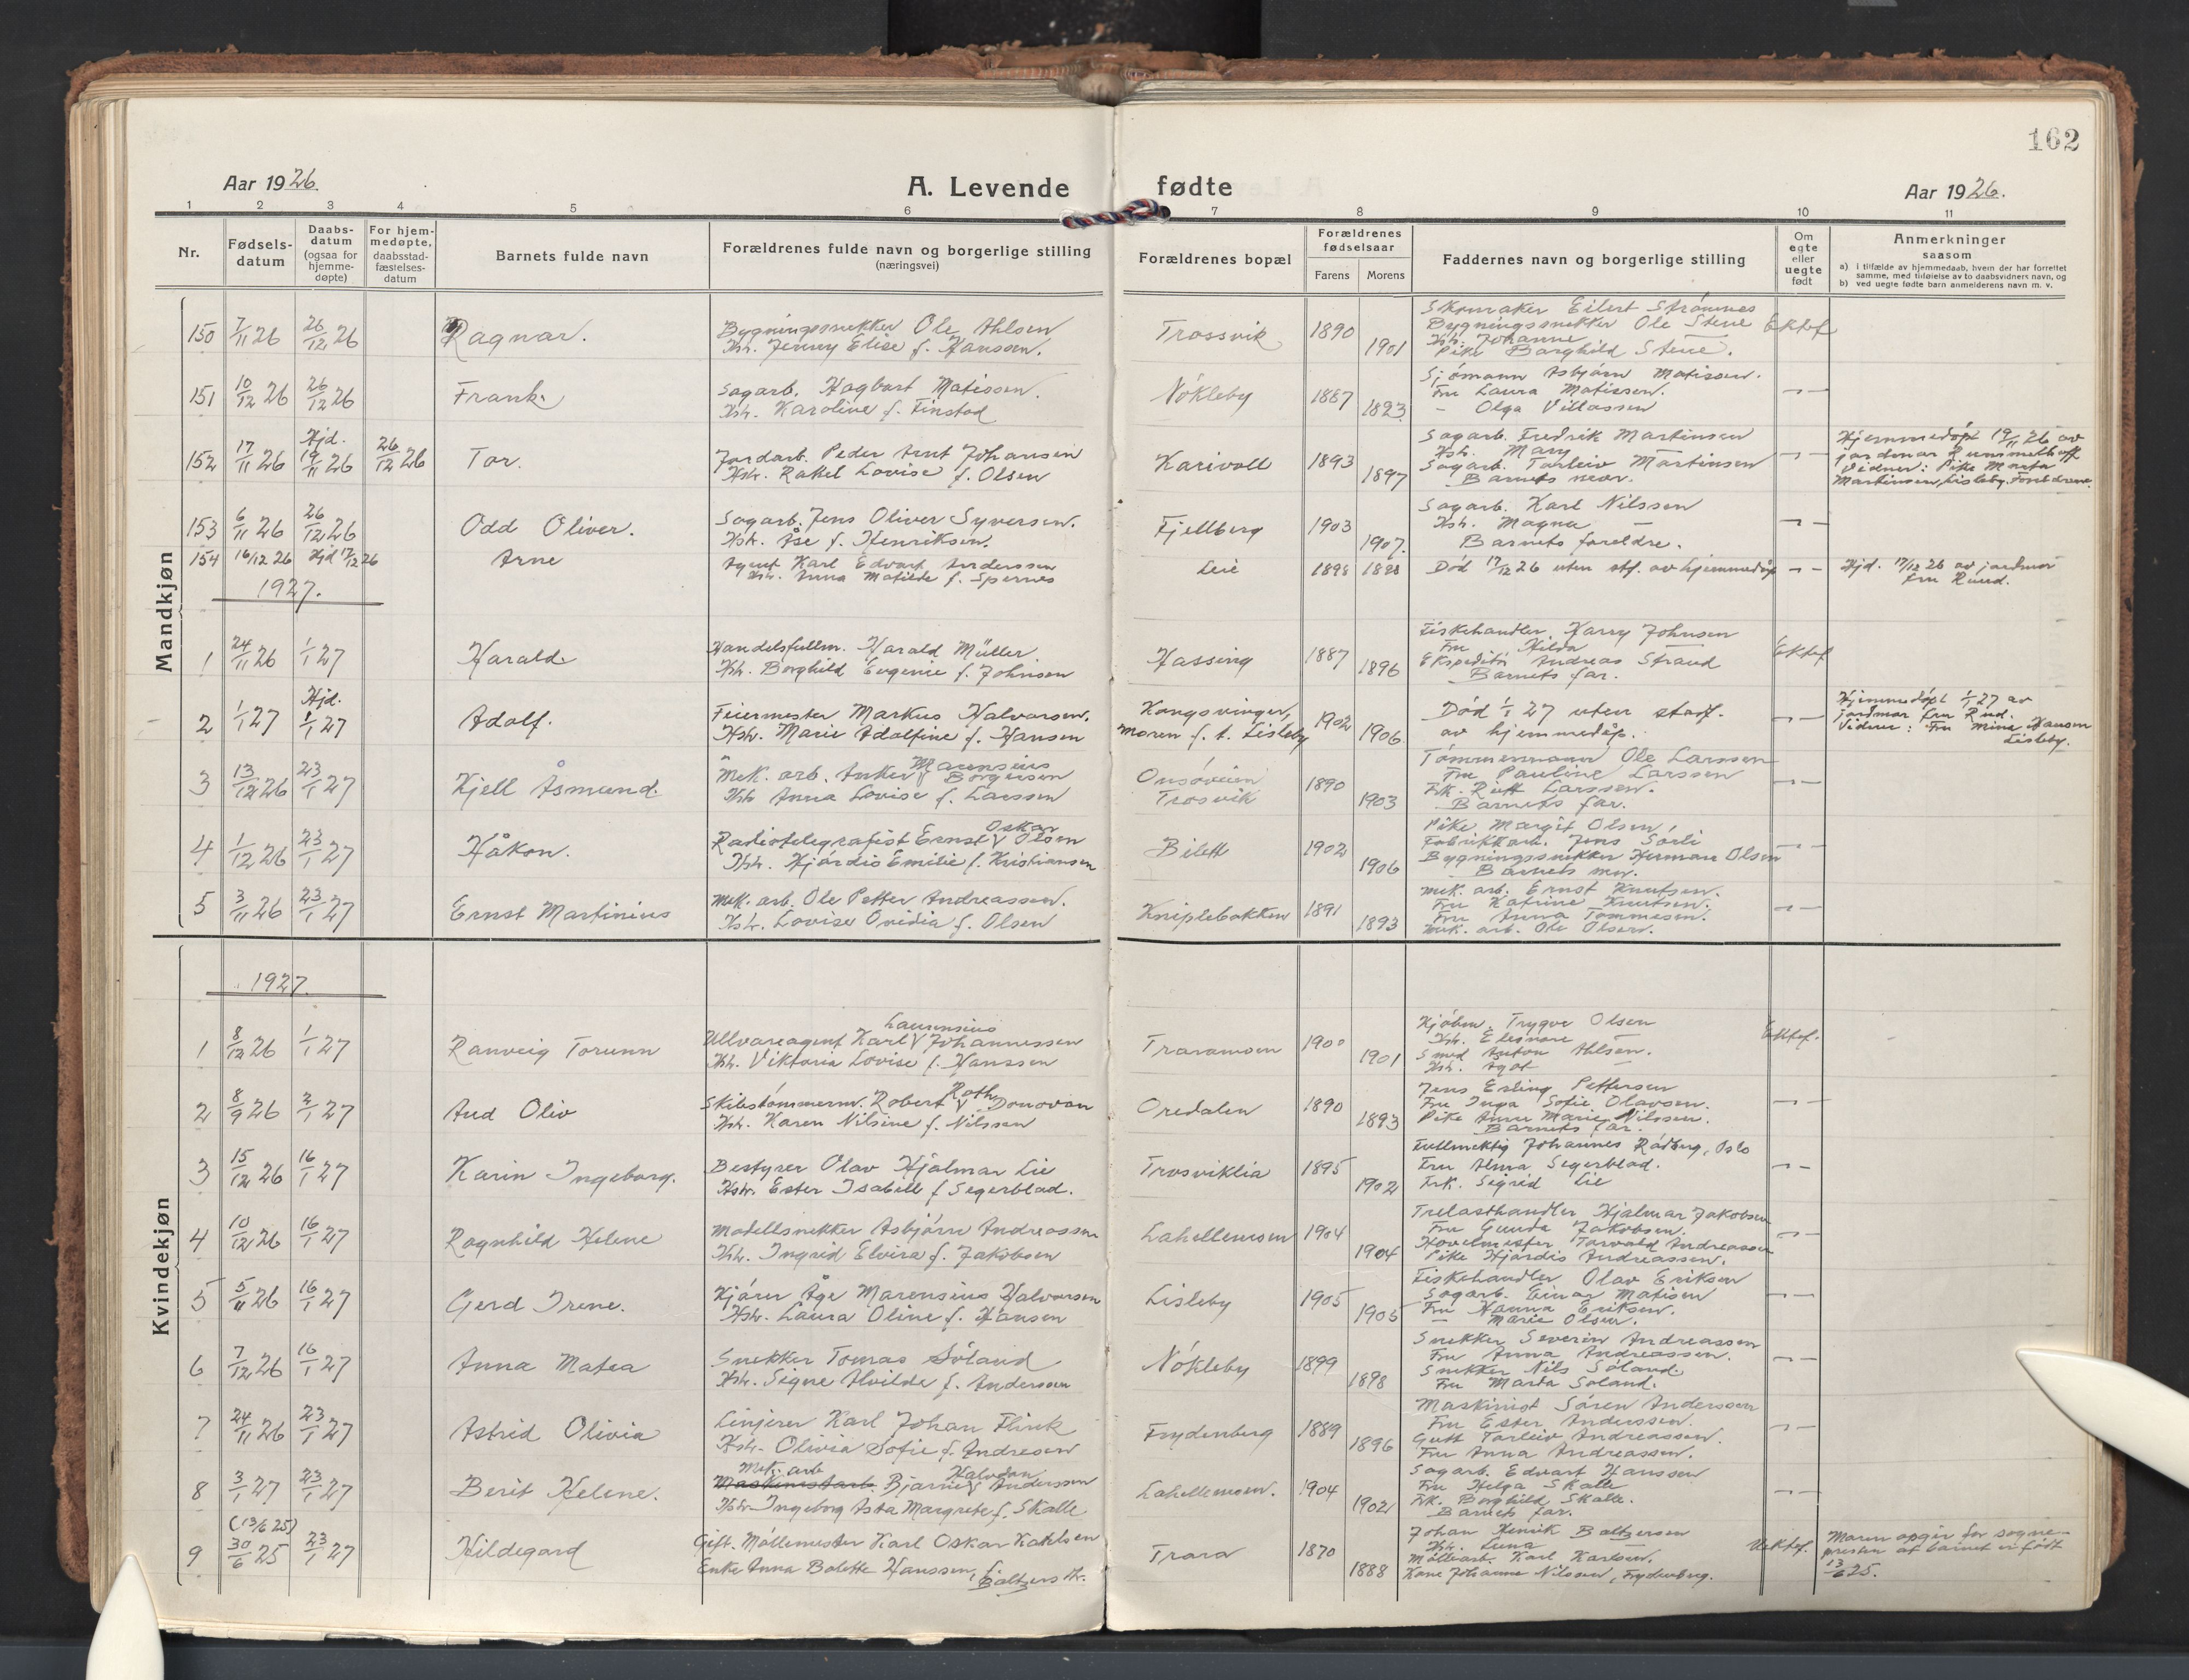 162
Aar 1926.
A. Levende fødte
Aar 1926.
1 2 3 4 5 6 7 8 9 10 11
Nr.
Fødsels-
datum
Daabs-
datum
(ogsaa for
hjemme-
døpte)
For hjem-
medøpte,
daabsstad-
fæstelses-
datum
Barnets fulde navn
Forældrenes fulde navn og borgerlige stilling
(næringsvei)
Forældrenes bopæl
Forældrenes
fødselsaar
Farens Morens
Faddernes navn og borgerlige stilling
Om
egte
eller
uegte
født
Anmerkninger
saasom
a) i tilfælde av hjemmedaab, hvem der har forrettet
samme, med tilføielse av to daabsvidners navn, og
b) ved uegte fødte barn anmelderens navn m. v.
Mandkjøn
150 7/11 26 26/12 26 Ragnar.
Bygningssnekker Ole Ahlsen
Hstr. Jenny Elise f. Hanssen.
Trossvik 1890 1901
Skomaker Eilert Strømnes
Bygningssnekker Ole Stene
Hstr. Johanne
Pike Borghild Stene.
Ektef
151 10/12 26 26/12 26 Frank.
Sagarb. Hagbart Matissen.
Hstr. Karoline f. Finstad
Nökleby 1887 1893
Sjömann Asbjörn Matissen.
Fru Laura Matissen.
- Olga Villassen
152 17/11 26 Hjd. 19/11 26 26/12 26 Tor.
Jordarb. Peder Arnt Johansen
Hstr. Rakel Lovise f. Olsen
Karivoll 1893 1897
Sagarb. Fredrik Martinsen
Hstr. Mary
Sagarb. Torleiv Martinsen
Barnets mor.
Hjemmedöpt 19/11 26 av
jordmor Rummelhoff
Vidner: Pike Marta
Martinsen, Lisleby. Foreldrene.
153 6/11 26 26/12 26 Odd Oliver.
Sagarb. Jens Oliver Syversen.
Hstr. Åse f. Henriksen.
Fjellberg 1903 1907.
Sagarb. Karl Nilssen
Hstr. Magna
Barnets foreldre.
154 16/12 26 Hjd 17/12 26 Arne
Agent Karl Edvart Anderssen
Hstr. Anna Matilde f. Spernes
Leie 1898 1888
Död 17/12 26 uten stf. av hjemmedåp
Hjd. 17/12 26 av jordmor
fru Ruud.
1927.
1 24/11 26 1/1 27 Harald
Handelsfullm. Harald Müller
Hstr. Borghild Eugenie f. Johnsen
Hassing 1887 1896
Fiskehandler Harry Johnsen
Fru Hilda
Ekspeditör Andreas Strand
Barnets far.
Ektef
2 1/1 27 Hjd. 1/1 27 Adolf.
Feiermester Markus Halvorsen.
Hstr. Marie Adolfine f. Hansen
Kongsvinger,
moren f. t. Lisleby
1902 1906
Död 1/1 27 uten stadf.
av hjemmedåp.
Hjemmedöpt 1/1 27 av
jordmor fru Rud.
Vidner: Fru Mina Hansen
Lisleby.
3 13/12 26 23/1 27 Kjell Åsmund.
Mek. arb. Anker Marensius Borgersen
Hstr. Anna Lovise f. Larssen
Onsöveien
Trosvik
1890 1903
Tömmermann Ole Larssen
Fru Pauline Larssen
Frk. Rutt Larssen.
Barnets far.
4 1/12 26 23/1 27 Håkon.
Radiotelegrafist Ernst Oskar Olsen
Hstr. Hjördis Emilie f. Kristiansen
Bilett 1902 1906
Pike Margit Olsen,
Fabrikkarb. Jens Sörli
Bygningssnekker Herman Olsen
Barnets mor.
5 3/11 26 23/1 27 Ernst Martinius
Mek. arb. Ole Petter Andreassen.
Hstr. Lovise Ovidia f. Olsen
Kniplebakken 1891 1893
Mek. arb. Ernst Knutsen.
Fru Katrine Knutsen.
Fru Anna Tommesen.
Mek. arb. Ole Olsen.
Kvindekjøn
1927.
1 8/12 26 1/1 27 Ranveig Torunn
Ullvareagent Karl Laurensius Johannessen
Hstr. Viktoria Lovise f. Hanssen
Traramoen 1900 1901
Kjöbm. Trygve Olsen
Hstr. Eleonore
Smed Anton Ahlsen.
Hstr. Agot
Ektef.
2 8/9 26 2/1 27 Aud Oliv
Skibstömmerm. Robert Roth Donovan
Hstr. Karen Nilsine f. Nilssen
Oredalen 1890 1893
Jens Erling Pettersen
Fru Inga Sofie Olavsen.
Pike Anna Marie Nilssen.
Barnets far.
3 15/12 26 16/1 27 Karin Ingeborg.
Bestyrer Olav Hjalmar Lie
Hstr. Ester Isabell f Segerblad.
Trosviklia 1895 1902
Fullmektig Johannes Rådberg, Oslo
Fru Alma Segerblad.
Frk. Sigrid Lie
4 10/12 26 16/1 27 Ragnhild Helene
Modellsnekker Asbjörn Andreassen
Hstr. Ingrid Elvira f. Jakobsen
Lahellemoen 1904 1904
Trelasthandler Hjalmar Jakobsen
Fru Gunda Jakobsen.
Hovelmester Torvald Andreassen
Pike Hjördis Andreassen.
5 5/11 26 16/1 27 Gerd Irene.
Kjörer Åge Marensius Halvorsen
Hstr. Laura Oline f. Hansen
Lisleby 1905 1905
Fiskehandler Olav Eriksen
Sagarb. Einar Matisen
Fru Hanna Eriksen.
- Marie Olsen.
6 7/12 26 16/1 27 Anna Matea
Snekker Tomas Söland
Hstr. Signe Alvilde f. Andersen
Nökleby 1899 1898
Snekker Severin Andreassen
Fru Anna Andreassen.
Snekker Nils Söland.
Fru Marta Soland.
7 24/11 26 23/1 27 Astrid Olivia
Linjerer Karl Johan Flink
Hstr. Olivia Sofie f. Andresen
Frydenberg 1889 1896
Maskinist Sören Anderssen
Fru Ester Anderssen.
Gutt Torleiv Andreassen.
Fru Anna Andreassen.
8 3/1 27 23/1 27 Berit Helene.
Mek. arb Bjarne Halvdan Anderssen
Hstr Ingeborg Asta Margrete f. Skalle
Lahellemoen. 1904 1902
Sagarb. Edvart Hanssen
Fru Helga Skalle
Frk. Borghild Skalle.
Barnets far.
9 (13/6 25) 30/6 25 23/1 27 Hildegard
Gift. Möllemester Karl Oskar Karlsen
Enke Anna Bolette Hanssen, f. Baltzers dtr.
Trara 1870 1888
Johan Henrik Baltzersen
Hstr. Luna
Möllearb. Karl Karlsen.
Kone Johanne Nilssen, Frydenberg.
Uektef.
Moren opgir for sogne-
presten at barnet er født
13/6 25.